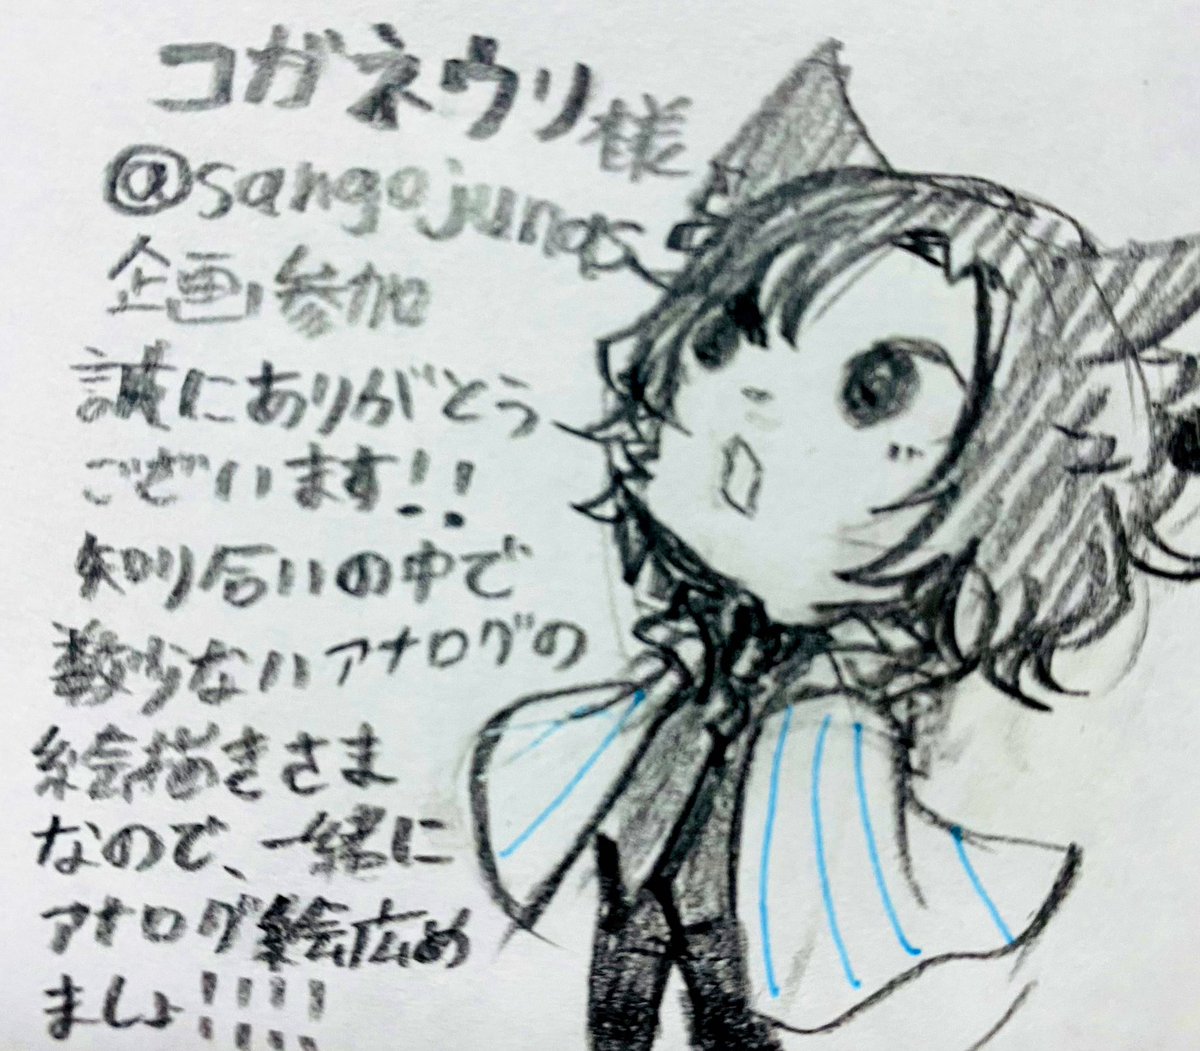 コガネウリ様
@sangojunos
企画参加
誠にありがとう
ございます!!
知り合いの中で
数少ないアナログの
絵描きさま
なので、一緒に
アナログ絵広め
ましょ!!!!